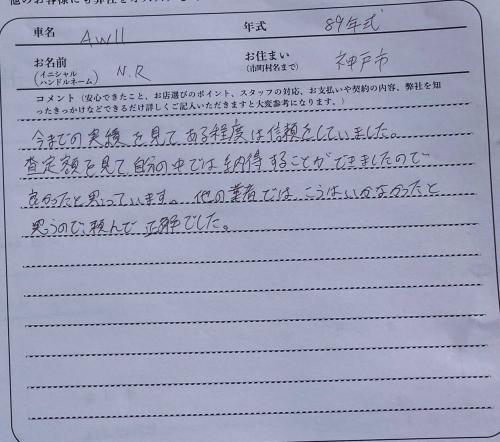 車名 AW11 年式 89年式
お名前 (イニシャル ハンドルネーム) N.R お住まい (市町村名まで) 神戸市
コメント（安心できたこと、お店選びのポイント、スタッフの対応、お支払いや契約の内容、弊社を知
ったきっかけなどできるだけ詳しくご記入いただきますと大変参考になります。）
今までの実績を見てある程度は信頼をしていました。
査定額を見て自分の中では納得することができましたので
良かったと思っています。他の業者ではこうはいかなかったと
思うので、頼んで正解でした。